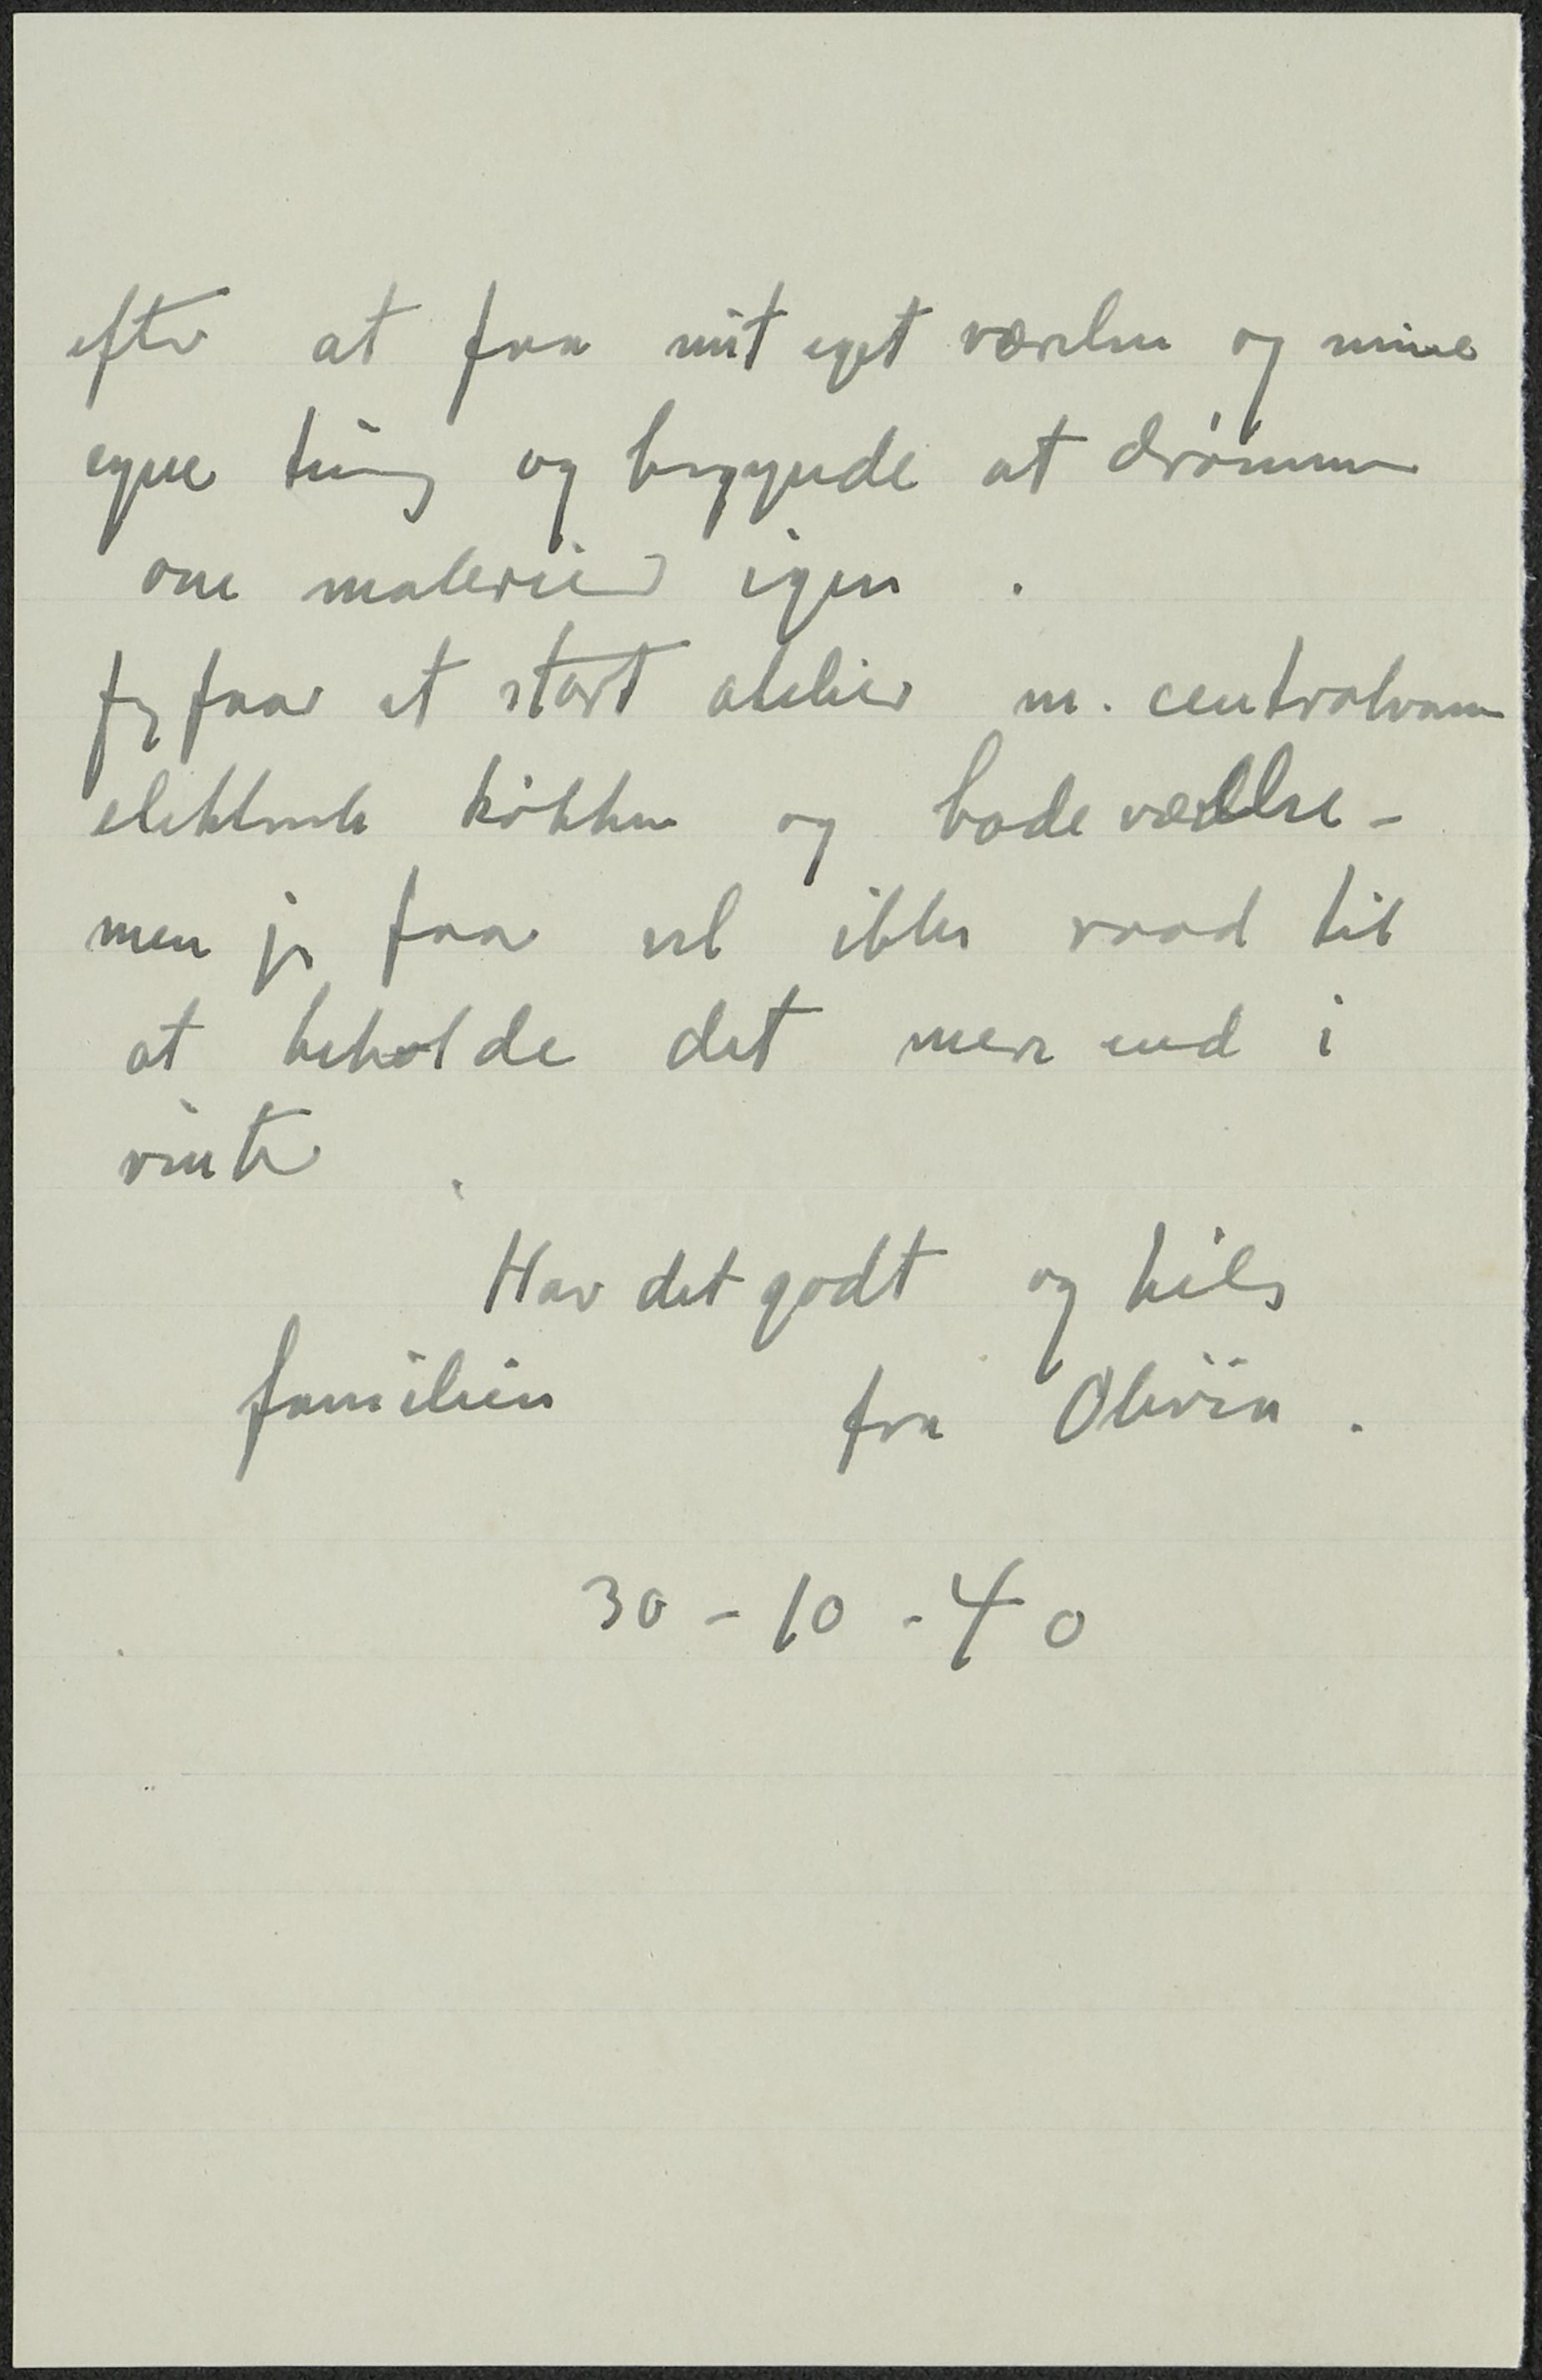 efter at faa mit eget værelse og mine
egne ting og begynde at drømme
om malerier igen .
Jeg faar et stort atelier m. centralvarme
elektrisk køkken og badeværelse -
men jeg faar vel ikke raad til
at beholde det mere end i
vinter .
Hav det godt og hils
familien fra Olivia .
30 - 10 - 40